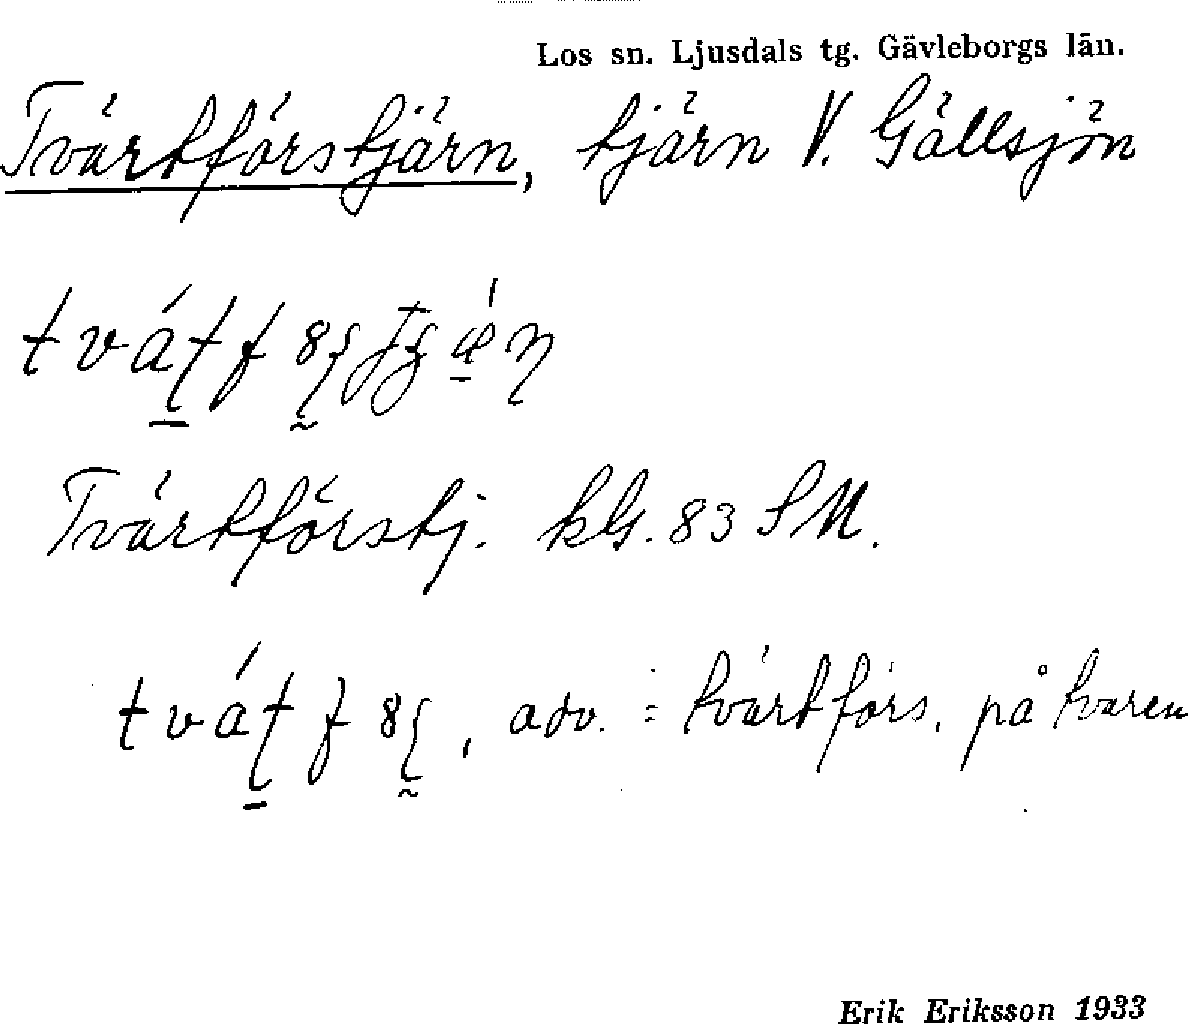 Los sn. Ljusdals tg. Gävleborgs län.
Tvärtförstjärn, tjärn V. Gällsjön
Tvärtförstj. kG. 83 SM.
adv. = tvärtförs, på tvaren
Erik Eriksson 1933